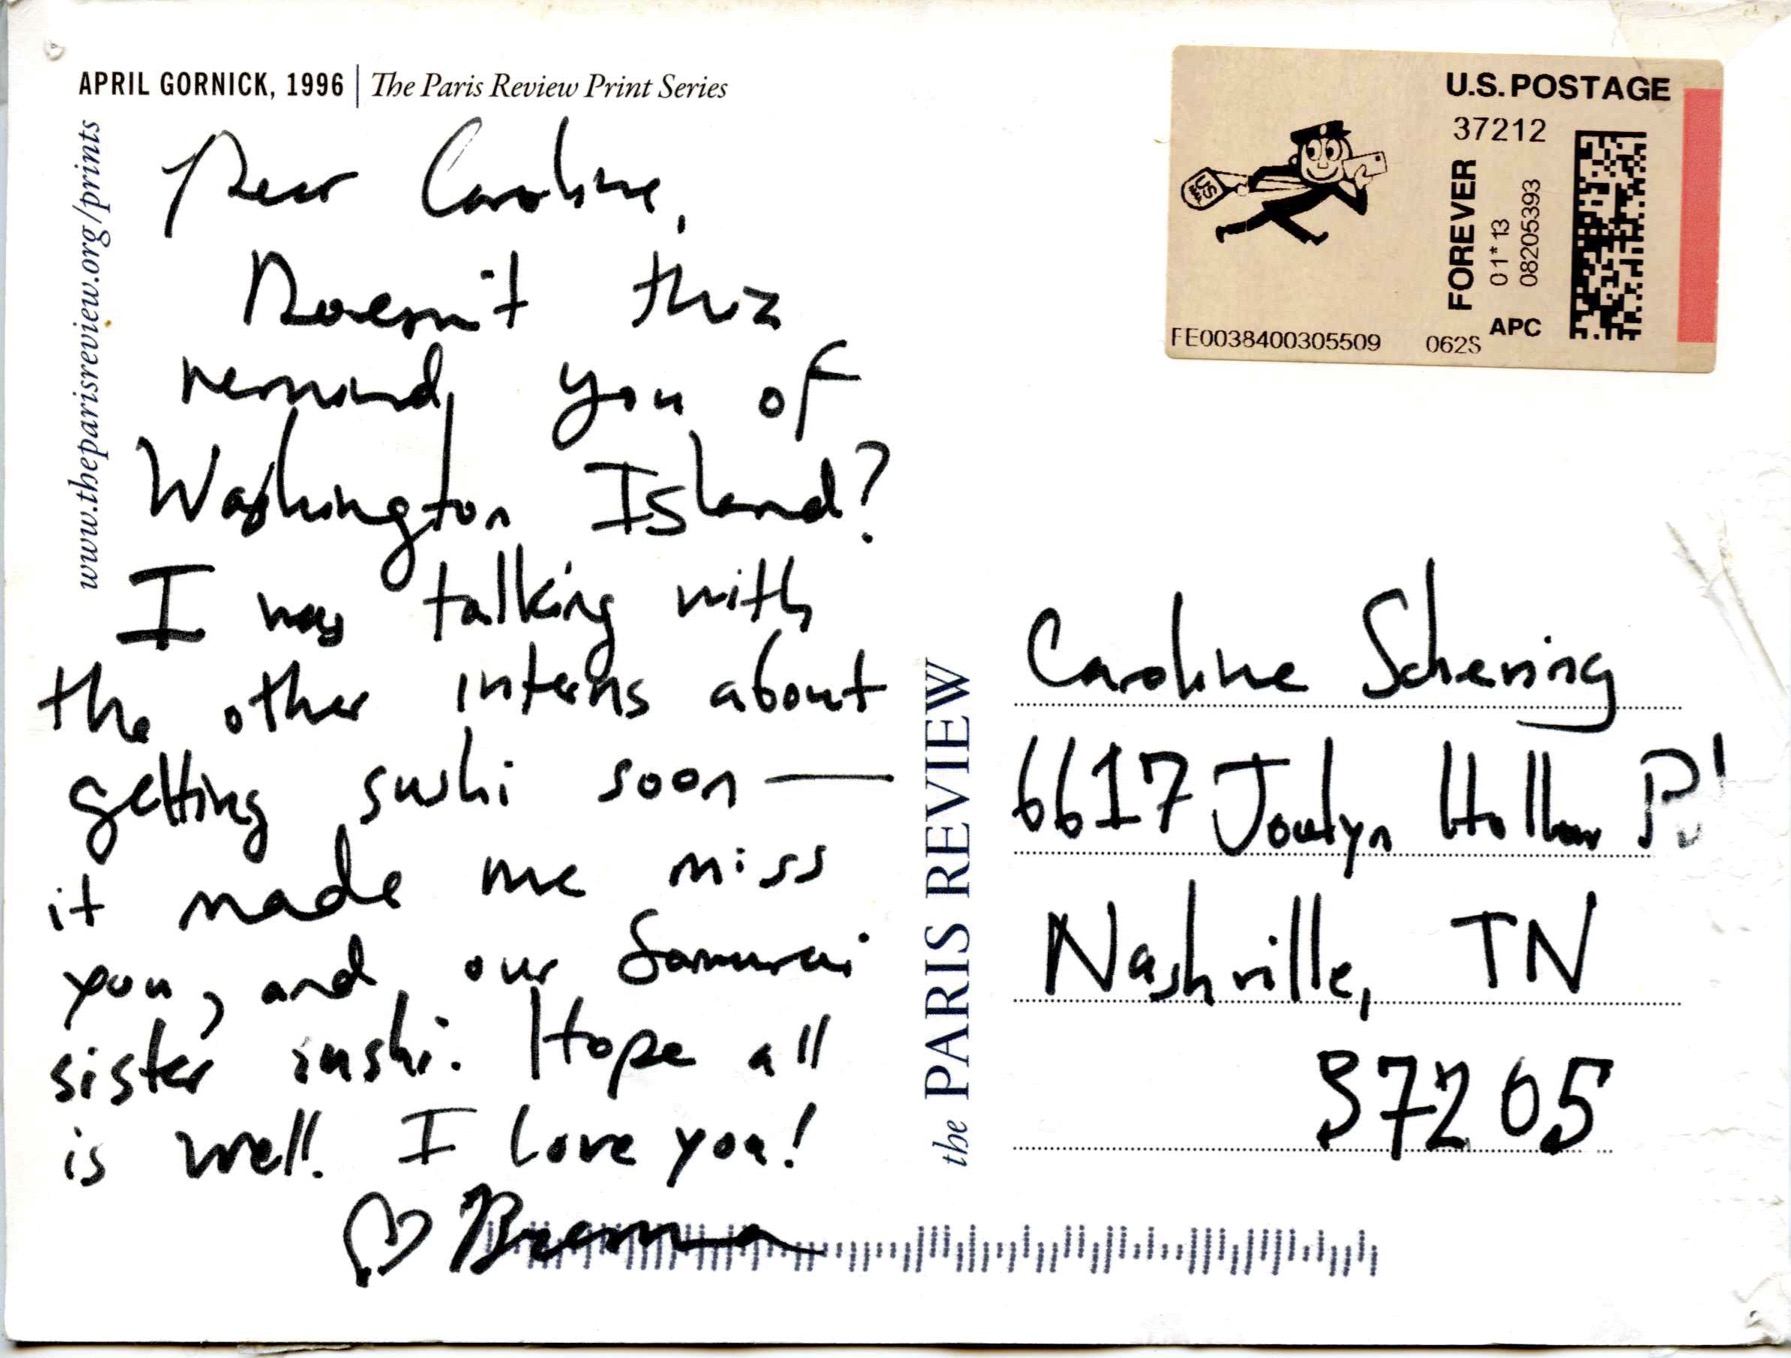 APRIL GORNICK, 1996 | The Paris Review Print Series
www.theparisreview.org/prints
Dear Caroline,
Doesn't this
remind you of
Washington Island?
I was talking with
the other interns about
getting sushi soon —
it made me miss
you, and our Samurai
sister sushi. Hope all
is well. I love you!
♡ Brenna
the PARIS REVIEW
U.S. POSTAGE
37212
FOREVER
01*13
08205393
APC
FE0038400305509
062S
US
Caroline Schering
6617 Jocelyn Hollow
Nashville, TN
37205